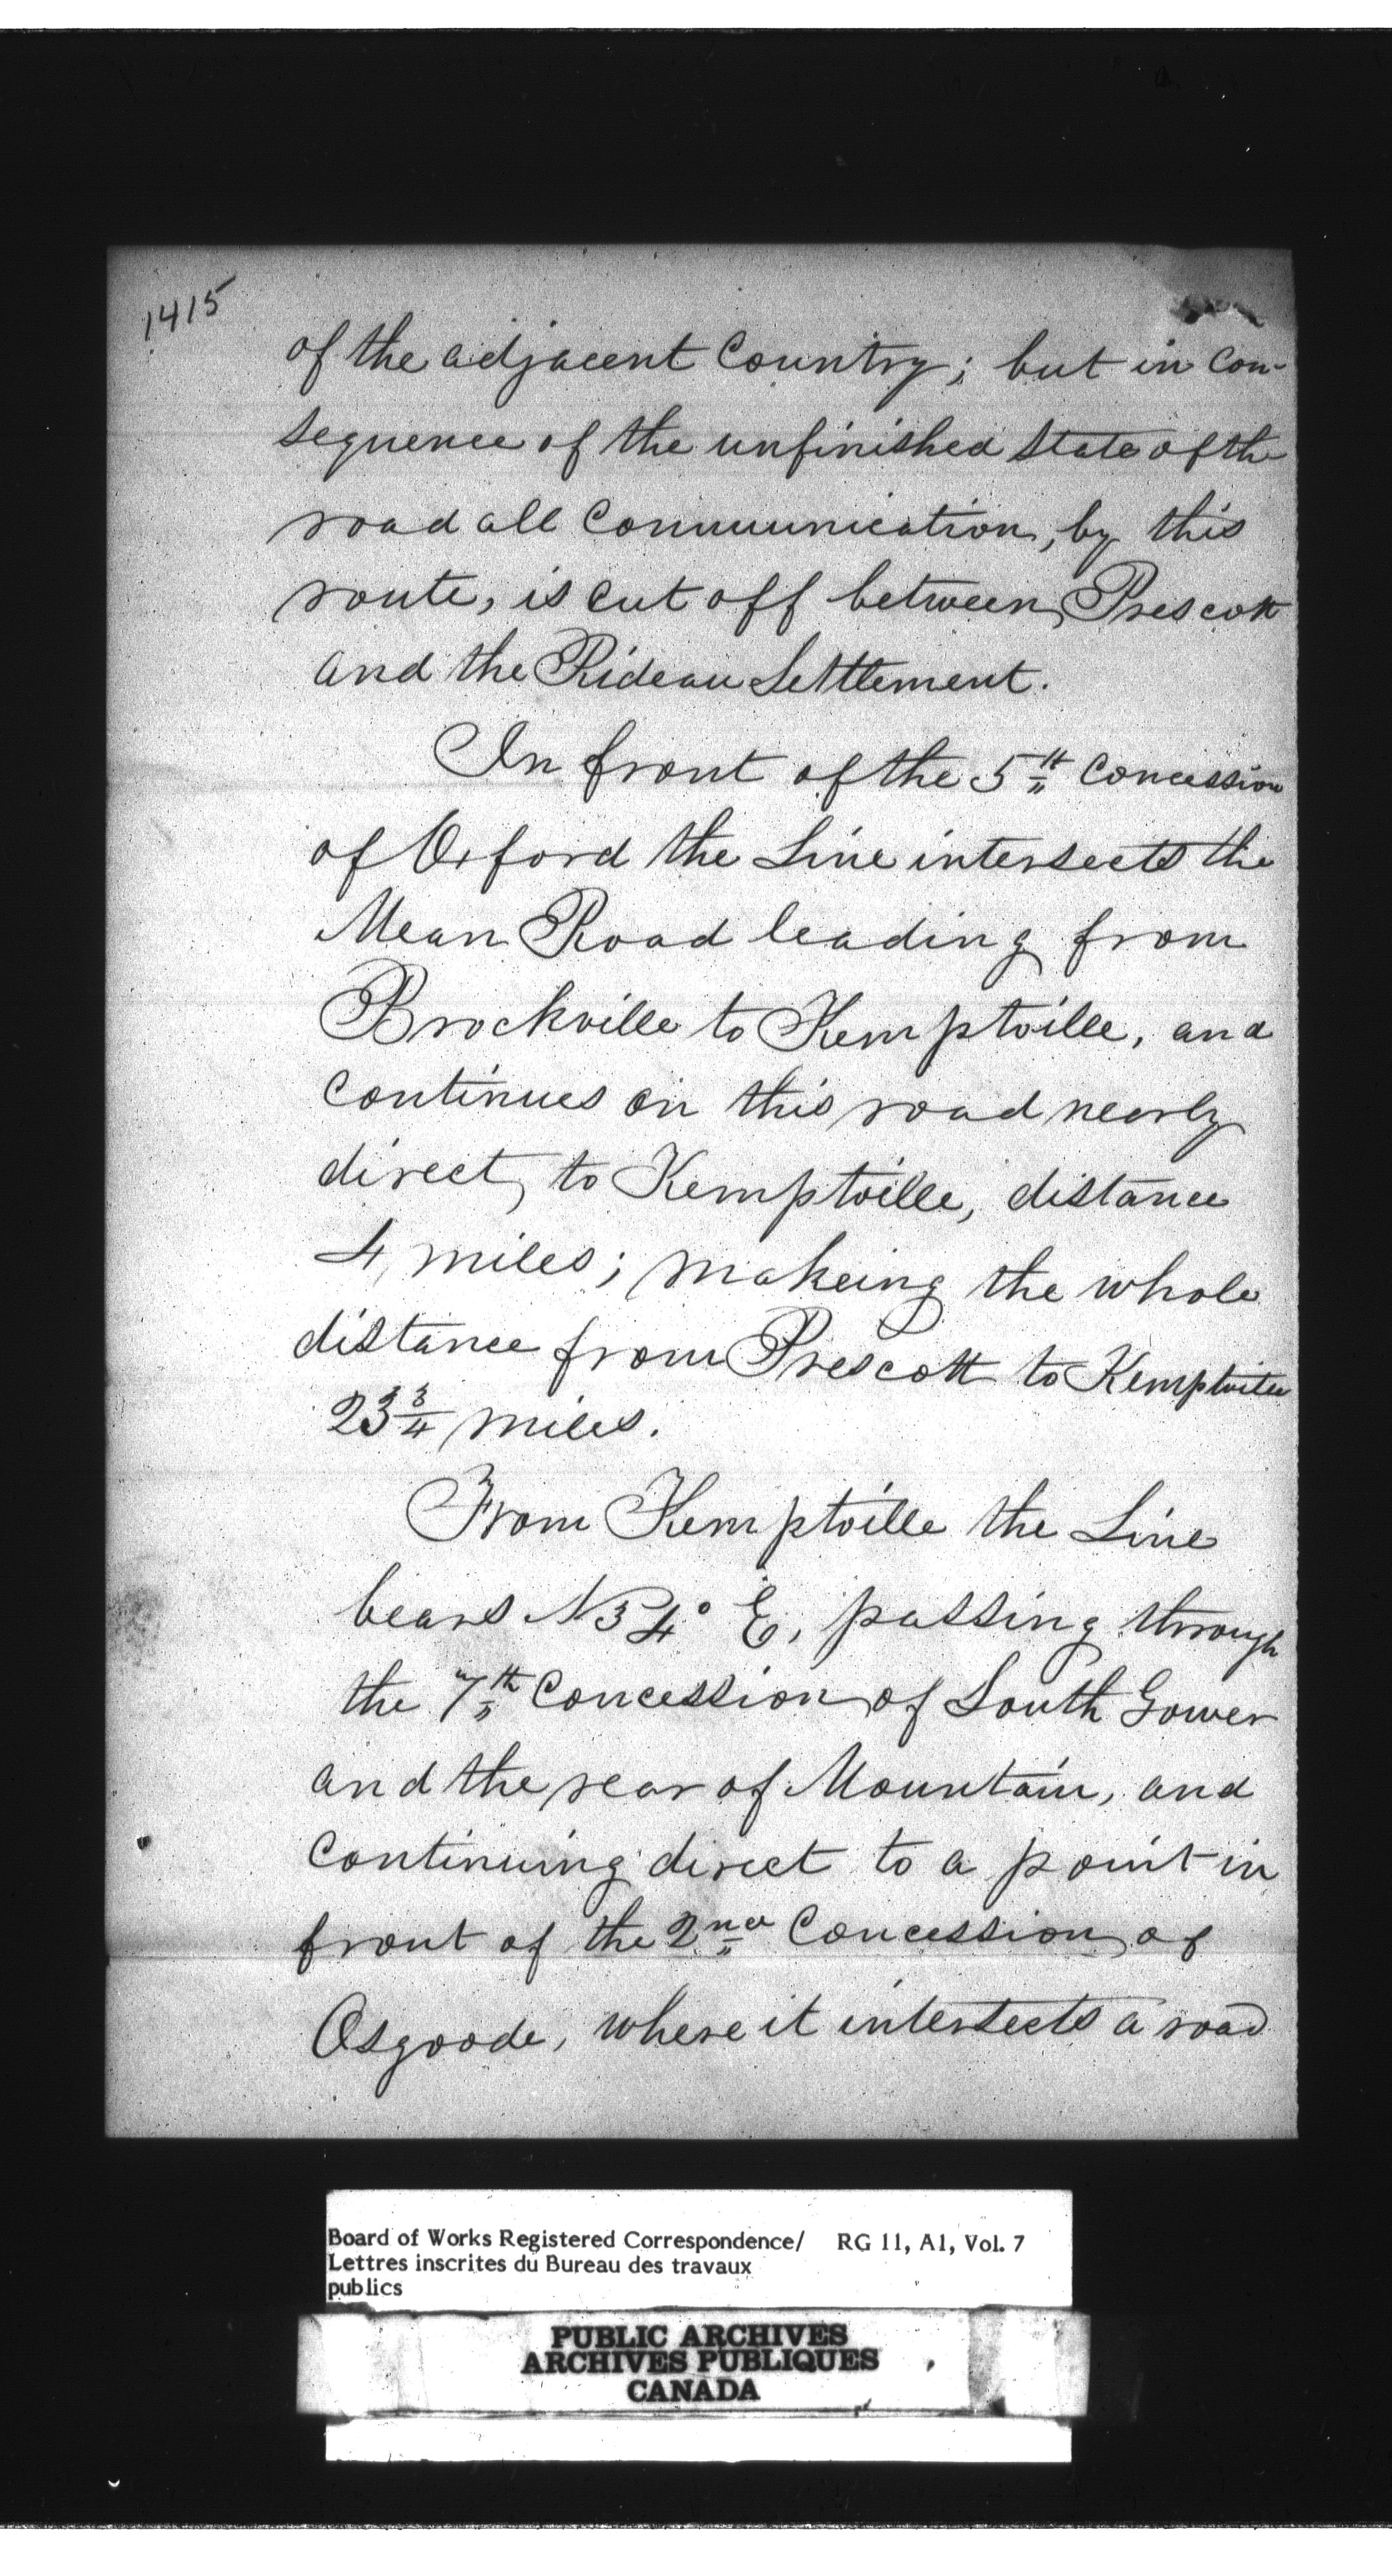 1415
of the adjacent Country; but in con-
sequence of the unfinished State of the
road all Communication, by this
route, is cut off between Prescott
and the Rideau Settlement.
In front of the 5th Concession
of Oxford the Line intersects the
Mean Road leading from
Brockville to Kemptville, and
Continues on this road nearly
direct, to Kemptville, distance
4 miles; makeing the whole
distance from Prescott to Kemptville
23 3/4 miles.
From Kemptville the Line
bears N 34° E, passing through
the 7th Concession of South Gower
and the rear of Mountain, and
Continuing direct to a point in
front of the 2nd Concession of
Osgoode, where it intersects a road
Board of Works Registered Correspondence/ RG 11, A1, Vol. 7
Lettres inscrites du Bureau des travaux
publics
PUBLIC ARCHIVES
ARCHIVES PUBLIQUES
CANADA